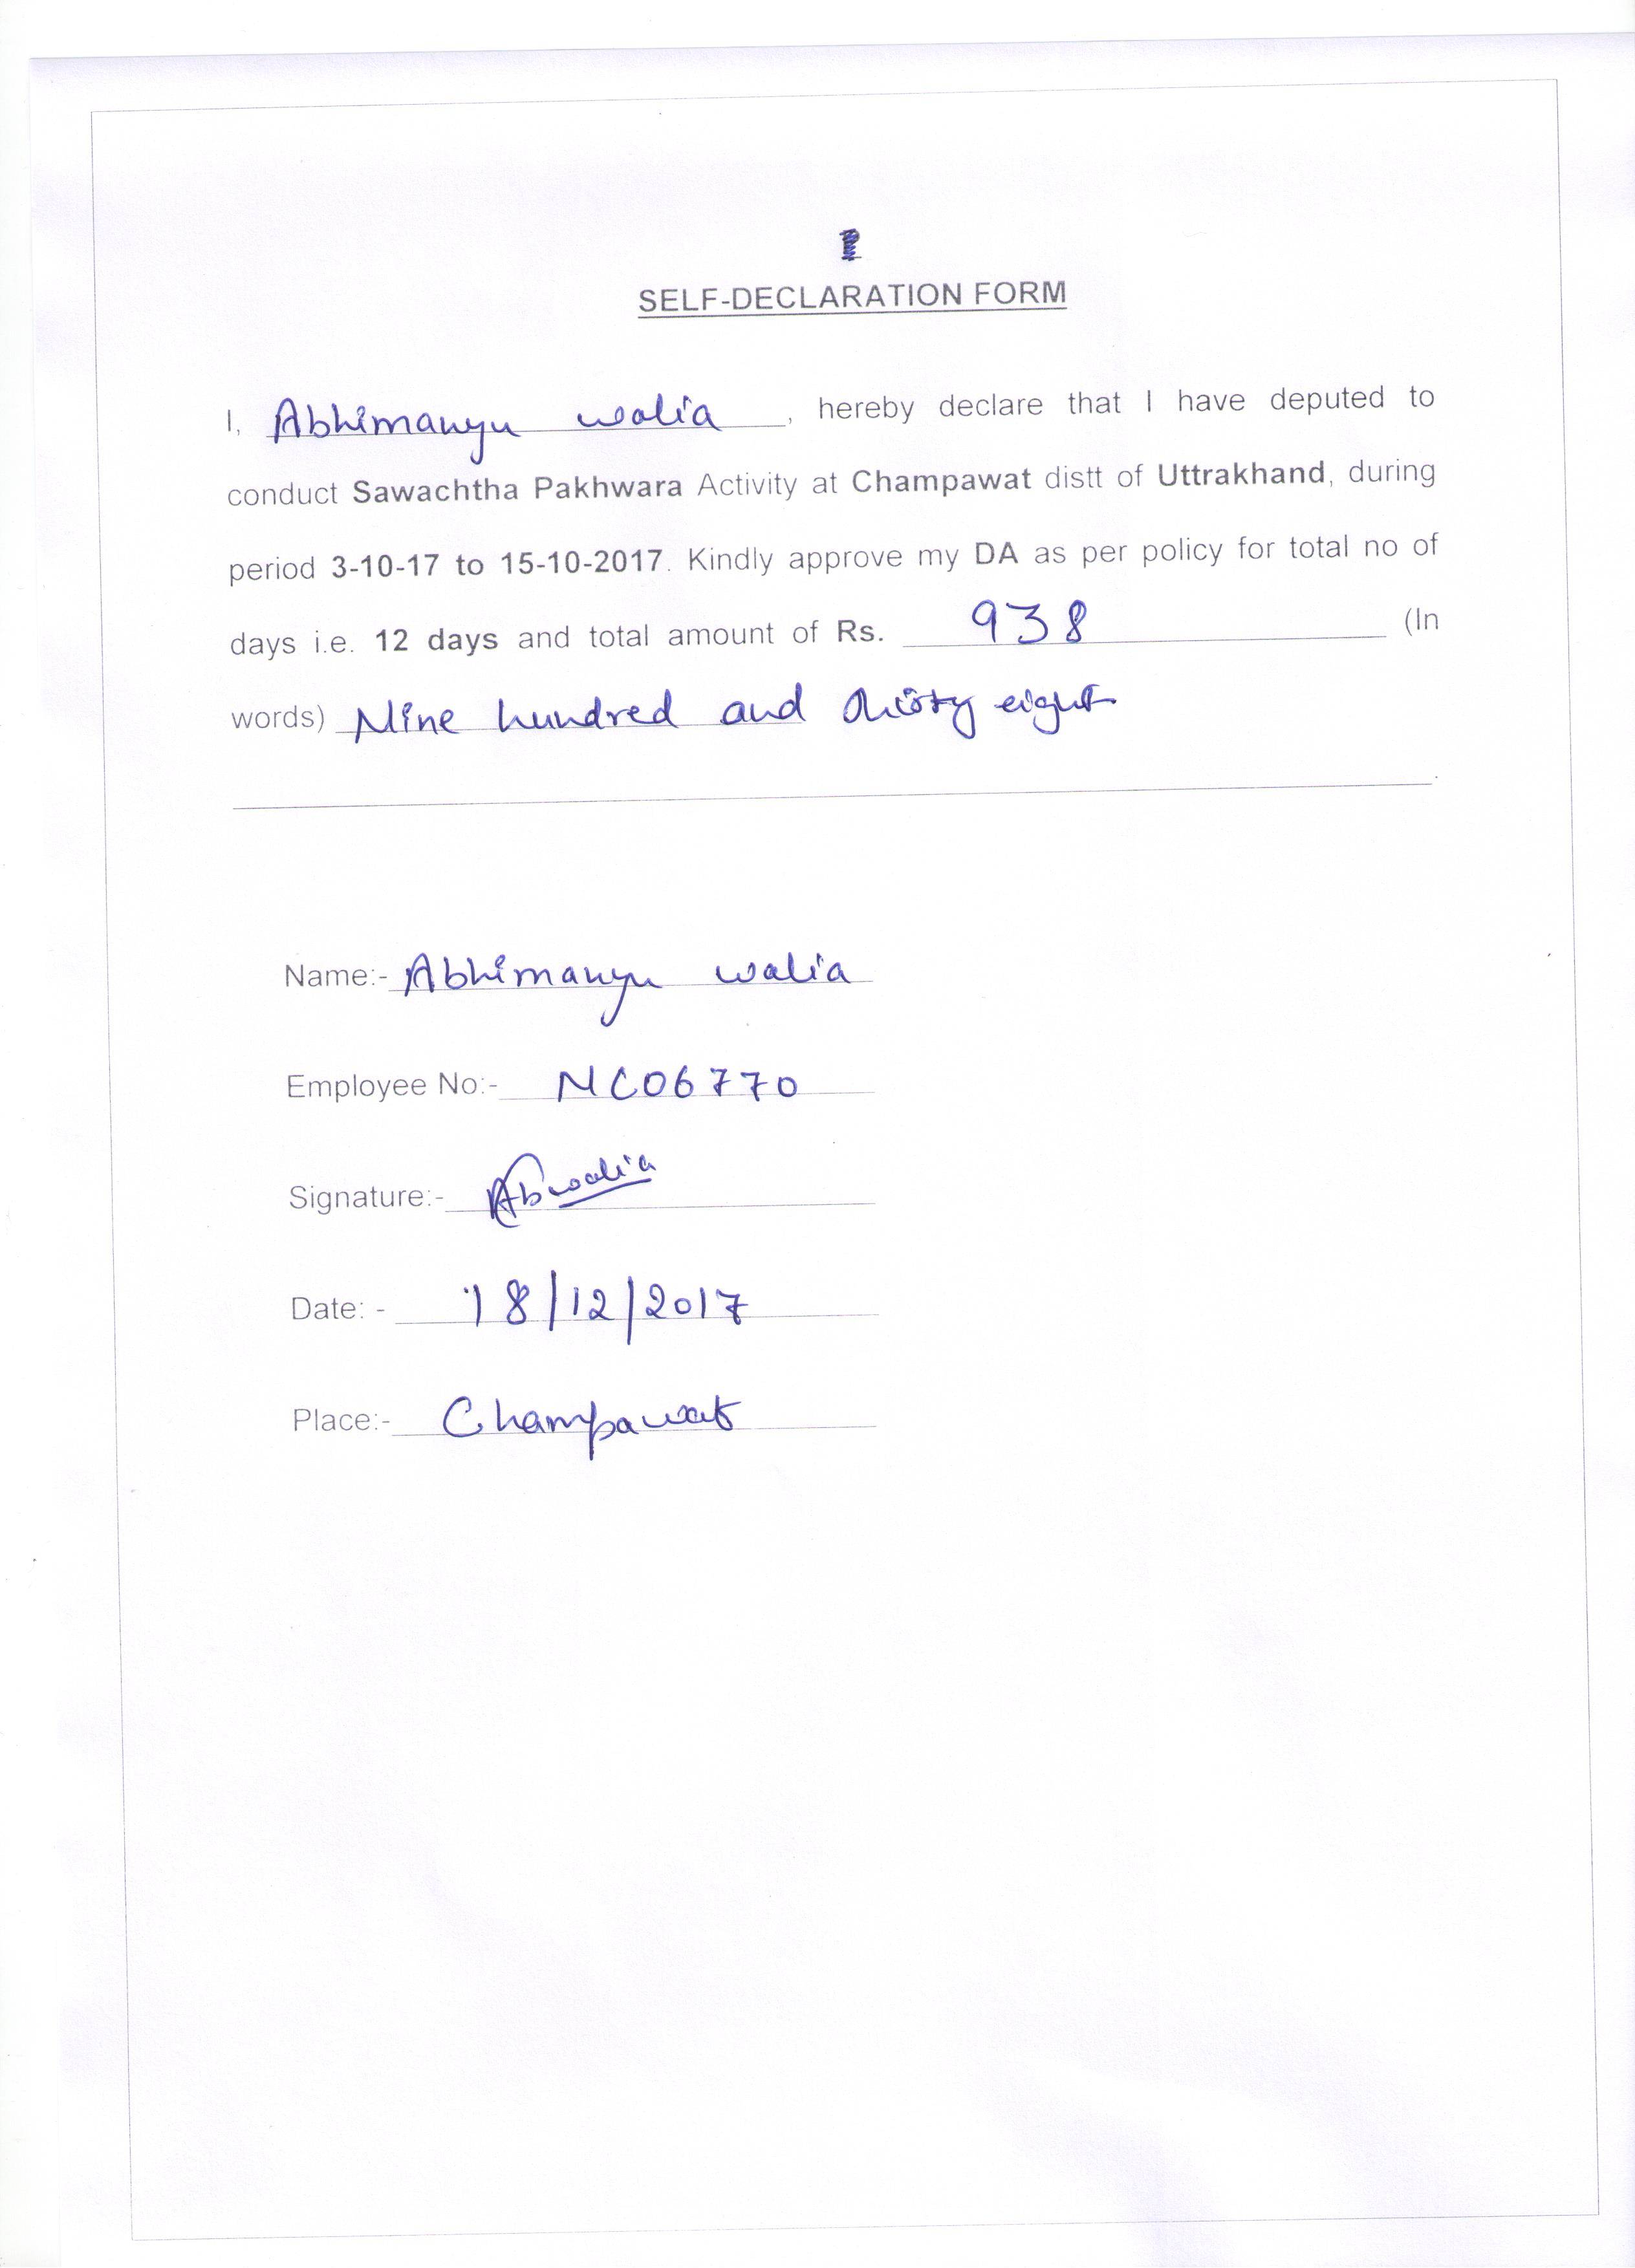 SELF-DECLARATION FORM
I, Abhimanyu walia, hereby declare that I have deputed to
conduct Sawachtha Pakhwara Activity at Champawat distt of Uttrakhand, during
period 3-10-17 to 15-10-2017. Kindly approve my DA as per policy for total no of
days i.e. 12 days and total amount of Rs. 938 (In
words) Nine hundred and thirty eight
Name:- Abhimanyu walia
Employee No:- NC06770
Signature:- Abwalia
Date: - 18/12/2017
Place:- Champawat